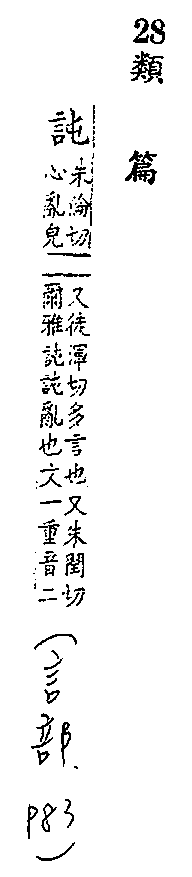 28 類篇
訰
朱淪切
心亂皃
又徒渾切多言也又朱閏切
爾雅訰訰亂也文一重音二
(言部. P83)